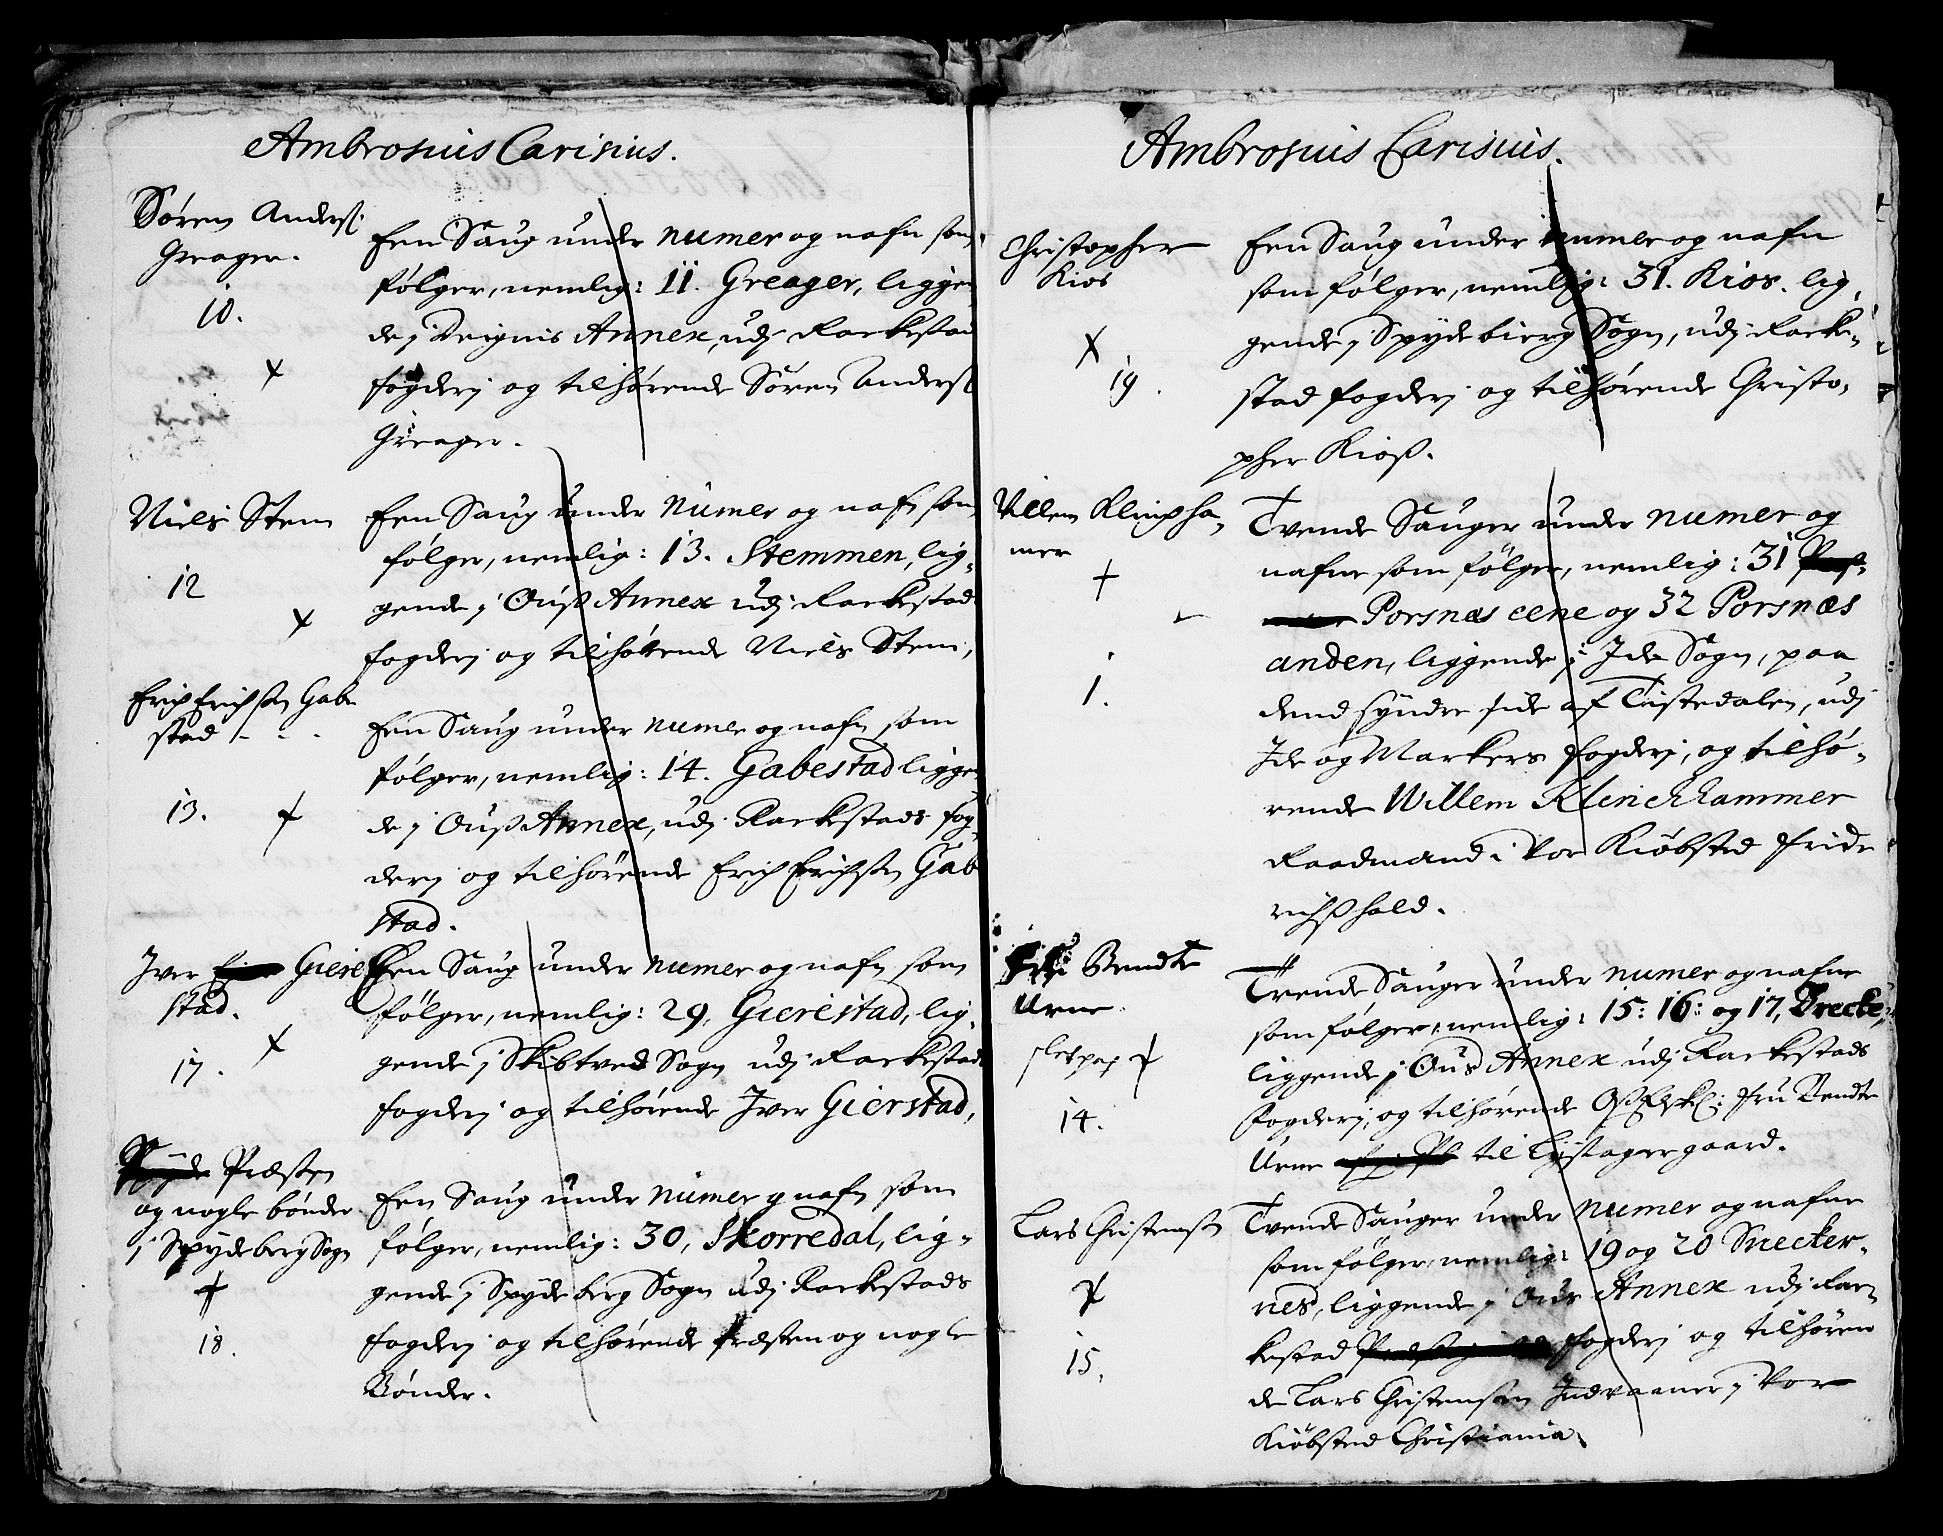 Ambrosius Carisius.
Sören Anderß:
Greager.
10.
Een Saug under numer og nafn som
følger, nemlig: 11. Greager, liggen
de j Deignis Annex, udj Rackestad
fogderj og tilhørende Sören Anderß
Greager.
Niels Stem
12
Een Saug under Numer og nafn som
følger, nemlig: 13. Stemmen, lig-
gende j Ouß Annex udj Rackestad
fogderj og tilhørende Niels Stem,
Erich Erichßen Gabe
stad - - .
13.
Een Saug under numer og nafn som
følger, nemlig: 14. Gabestad ligge
de j Ouß Annex, udj Rackestads fog-
derj og tilhørende Erich Erichßen Gab
stad.
Jver Giere
stad.
17.
Een Saug under numer og nafn som
følger, nemlig: 29, Gierestad, lig-
gende j Skibtved Sogn udj Rackestad
fogderj og tilhørende Jver Gierstad,
Præsten
og nogle bønder
j Spydeberg Sogn
18.
Een Saug under numer og nafn som
følger, nemlig: 30, Skorredal, lig-
gende j Spydeberg Sogn udj Rackestads
fogderj og tilhørende Præsten og nogle
Bønder.
Ambrosius Carisius.
Christopher
Kios
19.
Een Saug under numer og nafn
som følger, nemlig: 31. Kios. lig,
gende j Spydebierg Sogn, udj Racke-
stad fogderj og tilhørende Christo,
pher Kioß.
Villem Klinckha,
mer
1.
Tvende Sauger under numer og
nafne som følger, nemlig: 31
Porsnæs eene og 32 Porsnæs
anden, liggende j Jde Sogn, paa
dend syndre side af Tistedalen, udj
Jde og Markers fogderj, og tilhø-
rende Willem Klinchhammer
Raadmand i vor Kiøbsted Fride
richßhald.
Fru Bendte
Urne.
14.
Trende Sauger under numer og nafne
som følger, nemlig: 15: 16: og 17, Drecke,
liggende j Ous Annex udj Rackestads
Fogderj, og tilhørende Fru Bendte
Urne til Tystagergaard.
Lars Christenßen
15,
Tvende Sauger under numer og nafne
som følger, nemlig: 19 og 20 Snecker-
nes, liggende j Ous Annex udj Rac-
kestad fogderj og tilhøren
de Lars Christenßen Jndvaaner j vor
Kiøbsted Christiania.